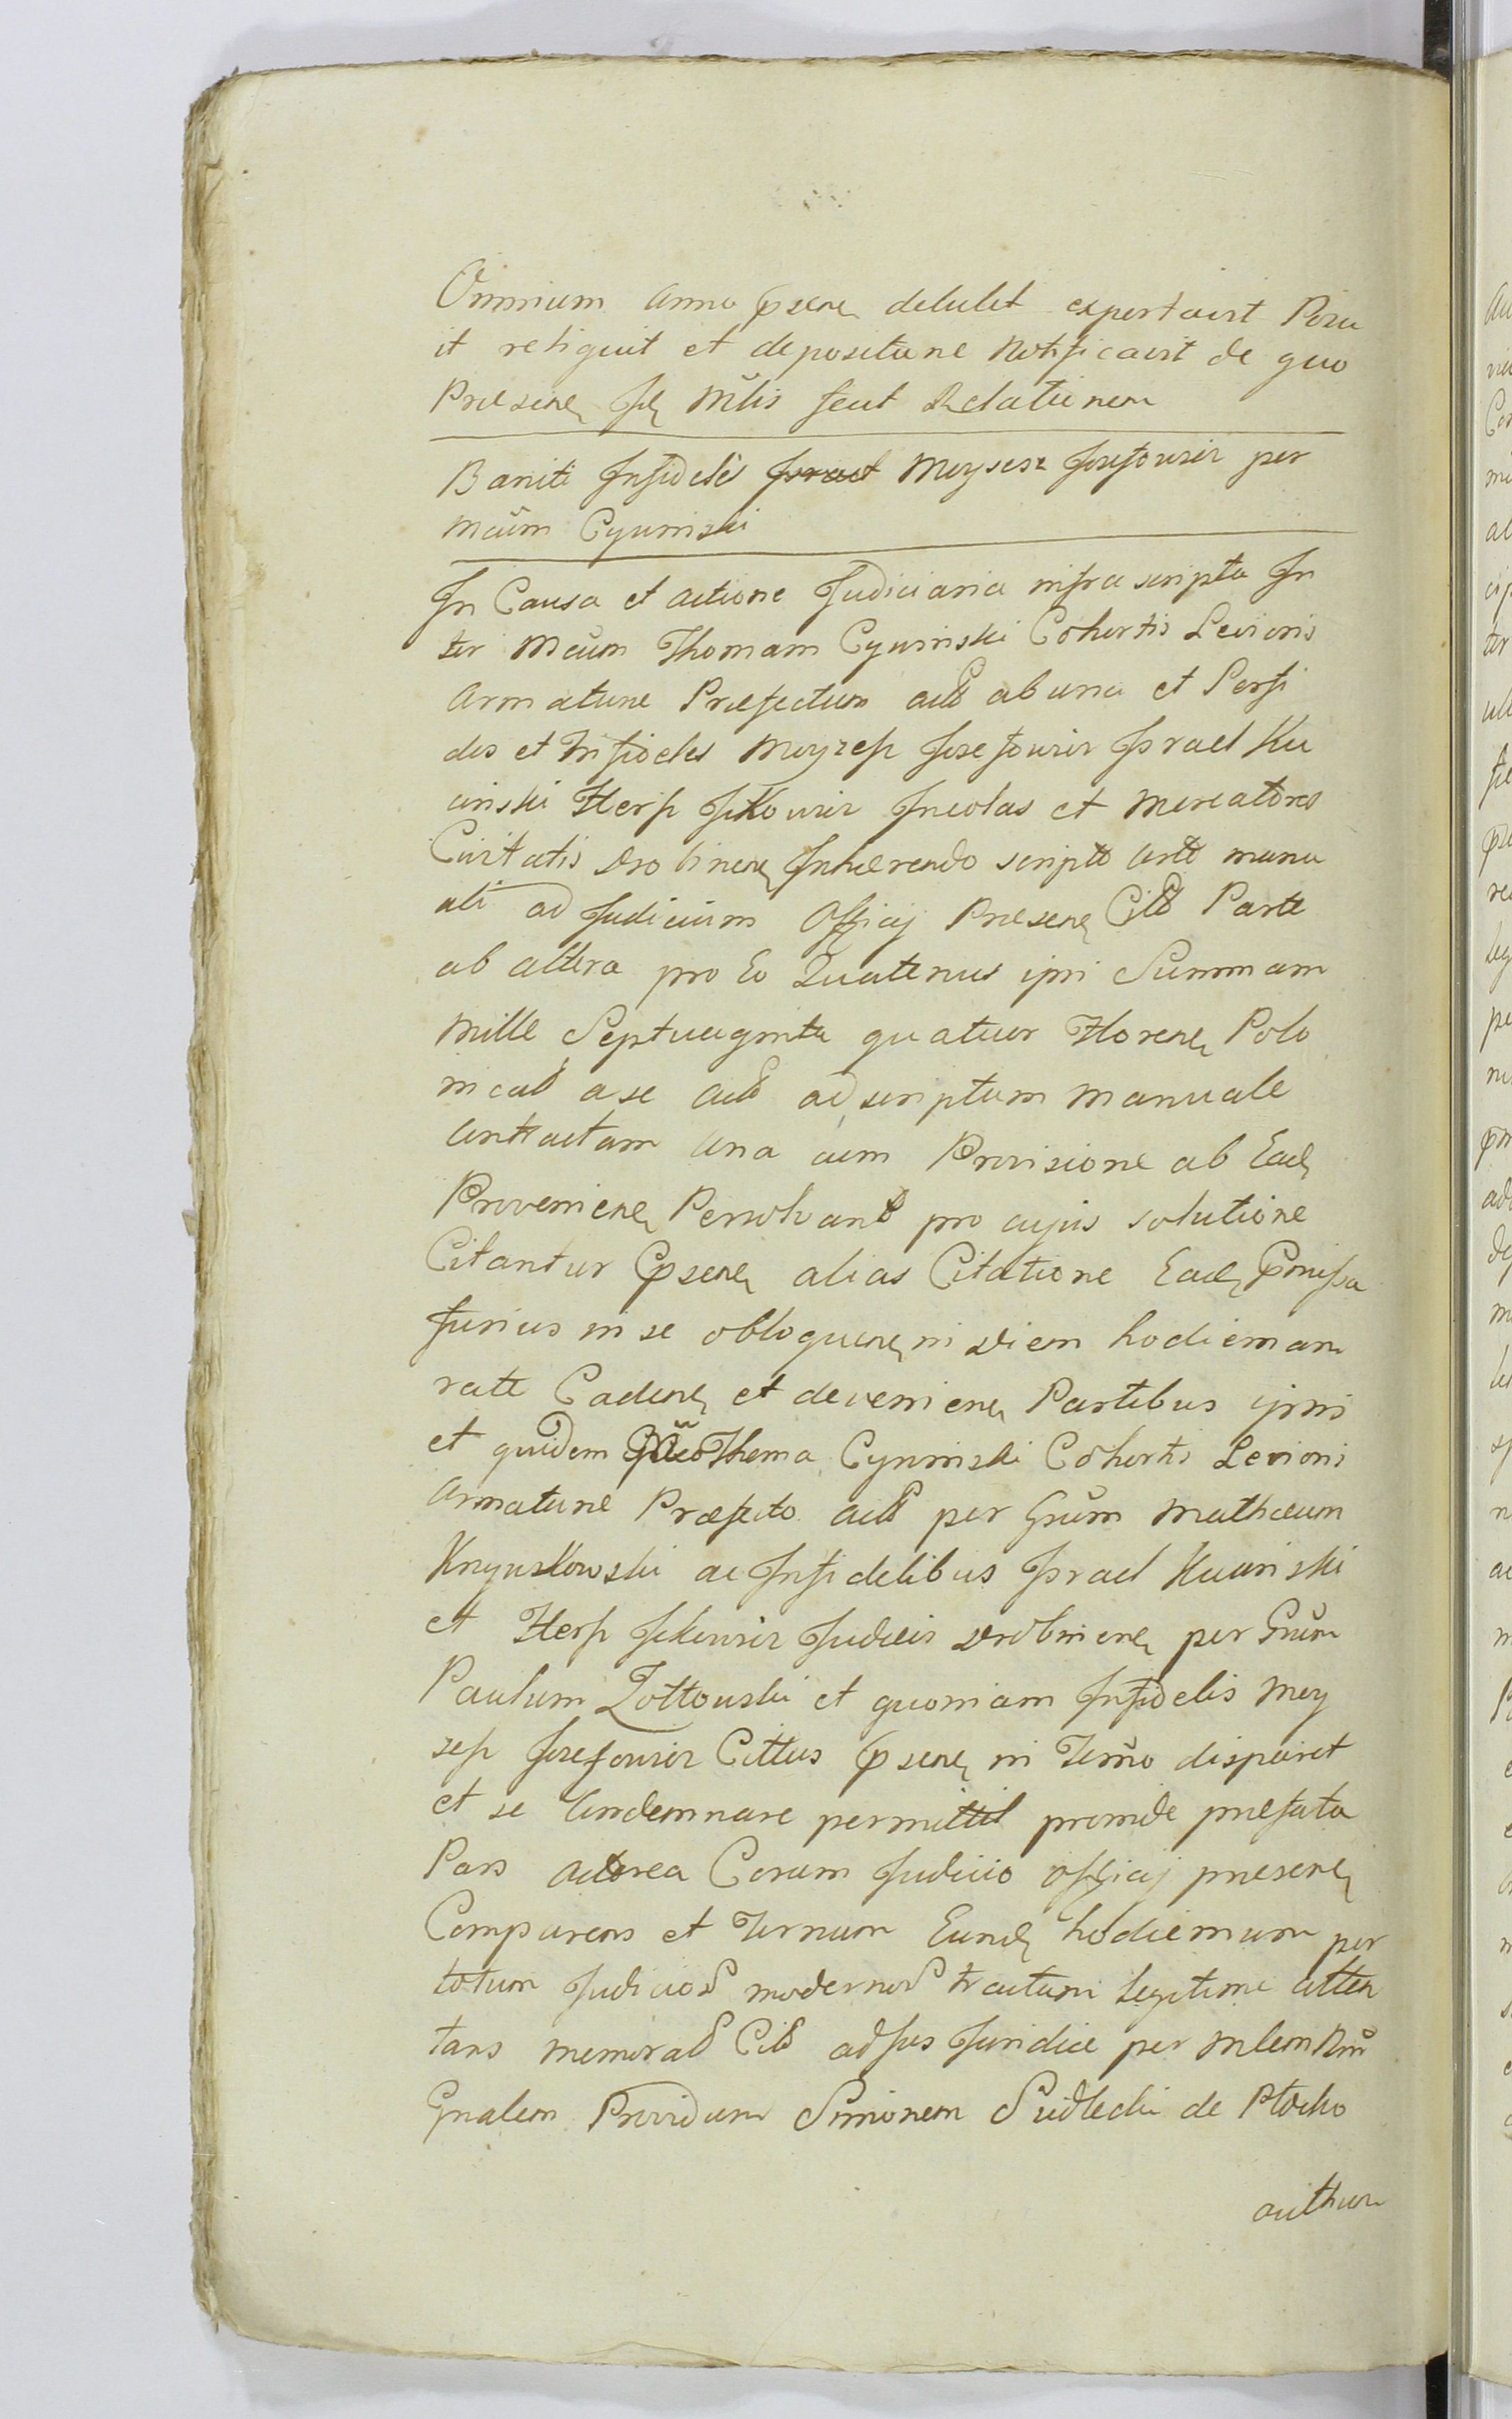 Omnium anno psene detulit exportavit Posu
it reliquit et depositione Notificavit de quo
Præsene fe Mtis fecit Relationem
Baniti Infidelis Israel Moysesz Josefowicz per
Mcum Cywinski
In Causa et actione Judiciaria infra scripta In
ter Mcum Thomam Cywinski Cohortis Levioris
Armaturæ Præfectum actt ab una et Perfi
dos et Infideles Moyzesz Josefowicz Israel Ku
ciński Hersz Ickowicz Incolas et Mercatores
Civitatis Drobinene Inhærendo scripto certo manu
ali ad Judicium Officij Præsene Citt Parte
ab altera pro Eo Quatenus ipsi Summam
Mille Septuaginta quatuor Florene Polo
nical a se actt ad scriptum manuale
contractam una cum Provisione ab Eade
Proveniene Persolvant pro cujus solutione
Citantur psene alias Citatione Eade pmissa
fusius in se obloquene in Diem hodiernam
rate Cadene et deveniene Partibus ipsis
et quidem Mco Thoma Cywinski Cohortis Levioris
Armaturæ Præfecto actt per Gsum Mathæum
Knyszkowski ac Infidelibus Israel Kuciński
et Hersz Ickowicz Judæis Drobinene per Gsum
Paulum Zottowski et quoniam Infidelis Moy
zesz Josefowicz Cittus psene in Termo disparet
et se Condemnare permittit proinde præfata
Pars actorea Coram Judicio Officij præsene
Comparens et Ternum Eunde hodiernum per
totum Judicior modernor tractum legitime atten
tans memorat Citt ad Jus Juridice per Mlem Rni
Gnalem Providum Simonem Siedlecki de Plocko
authen